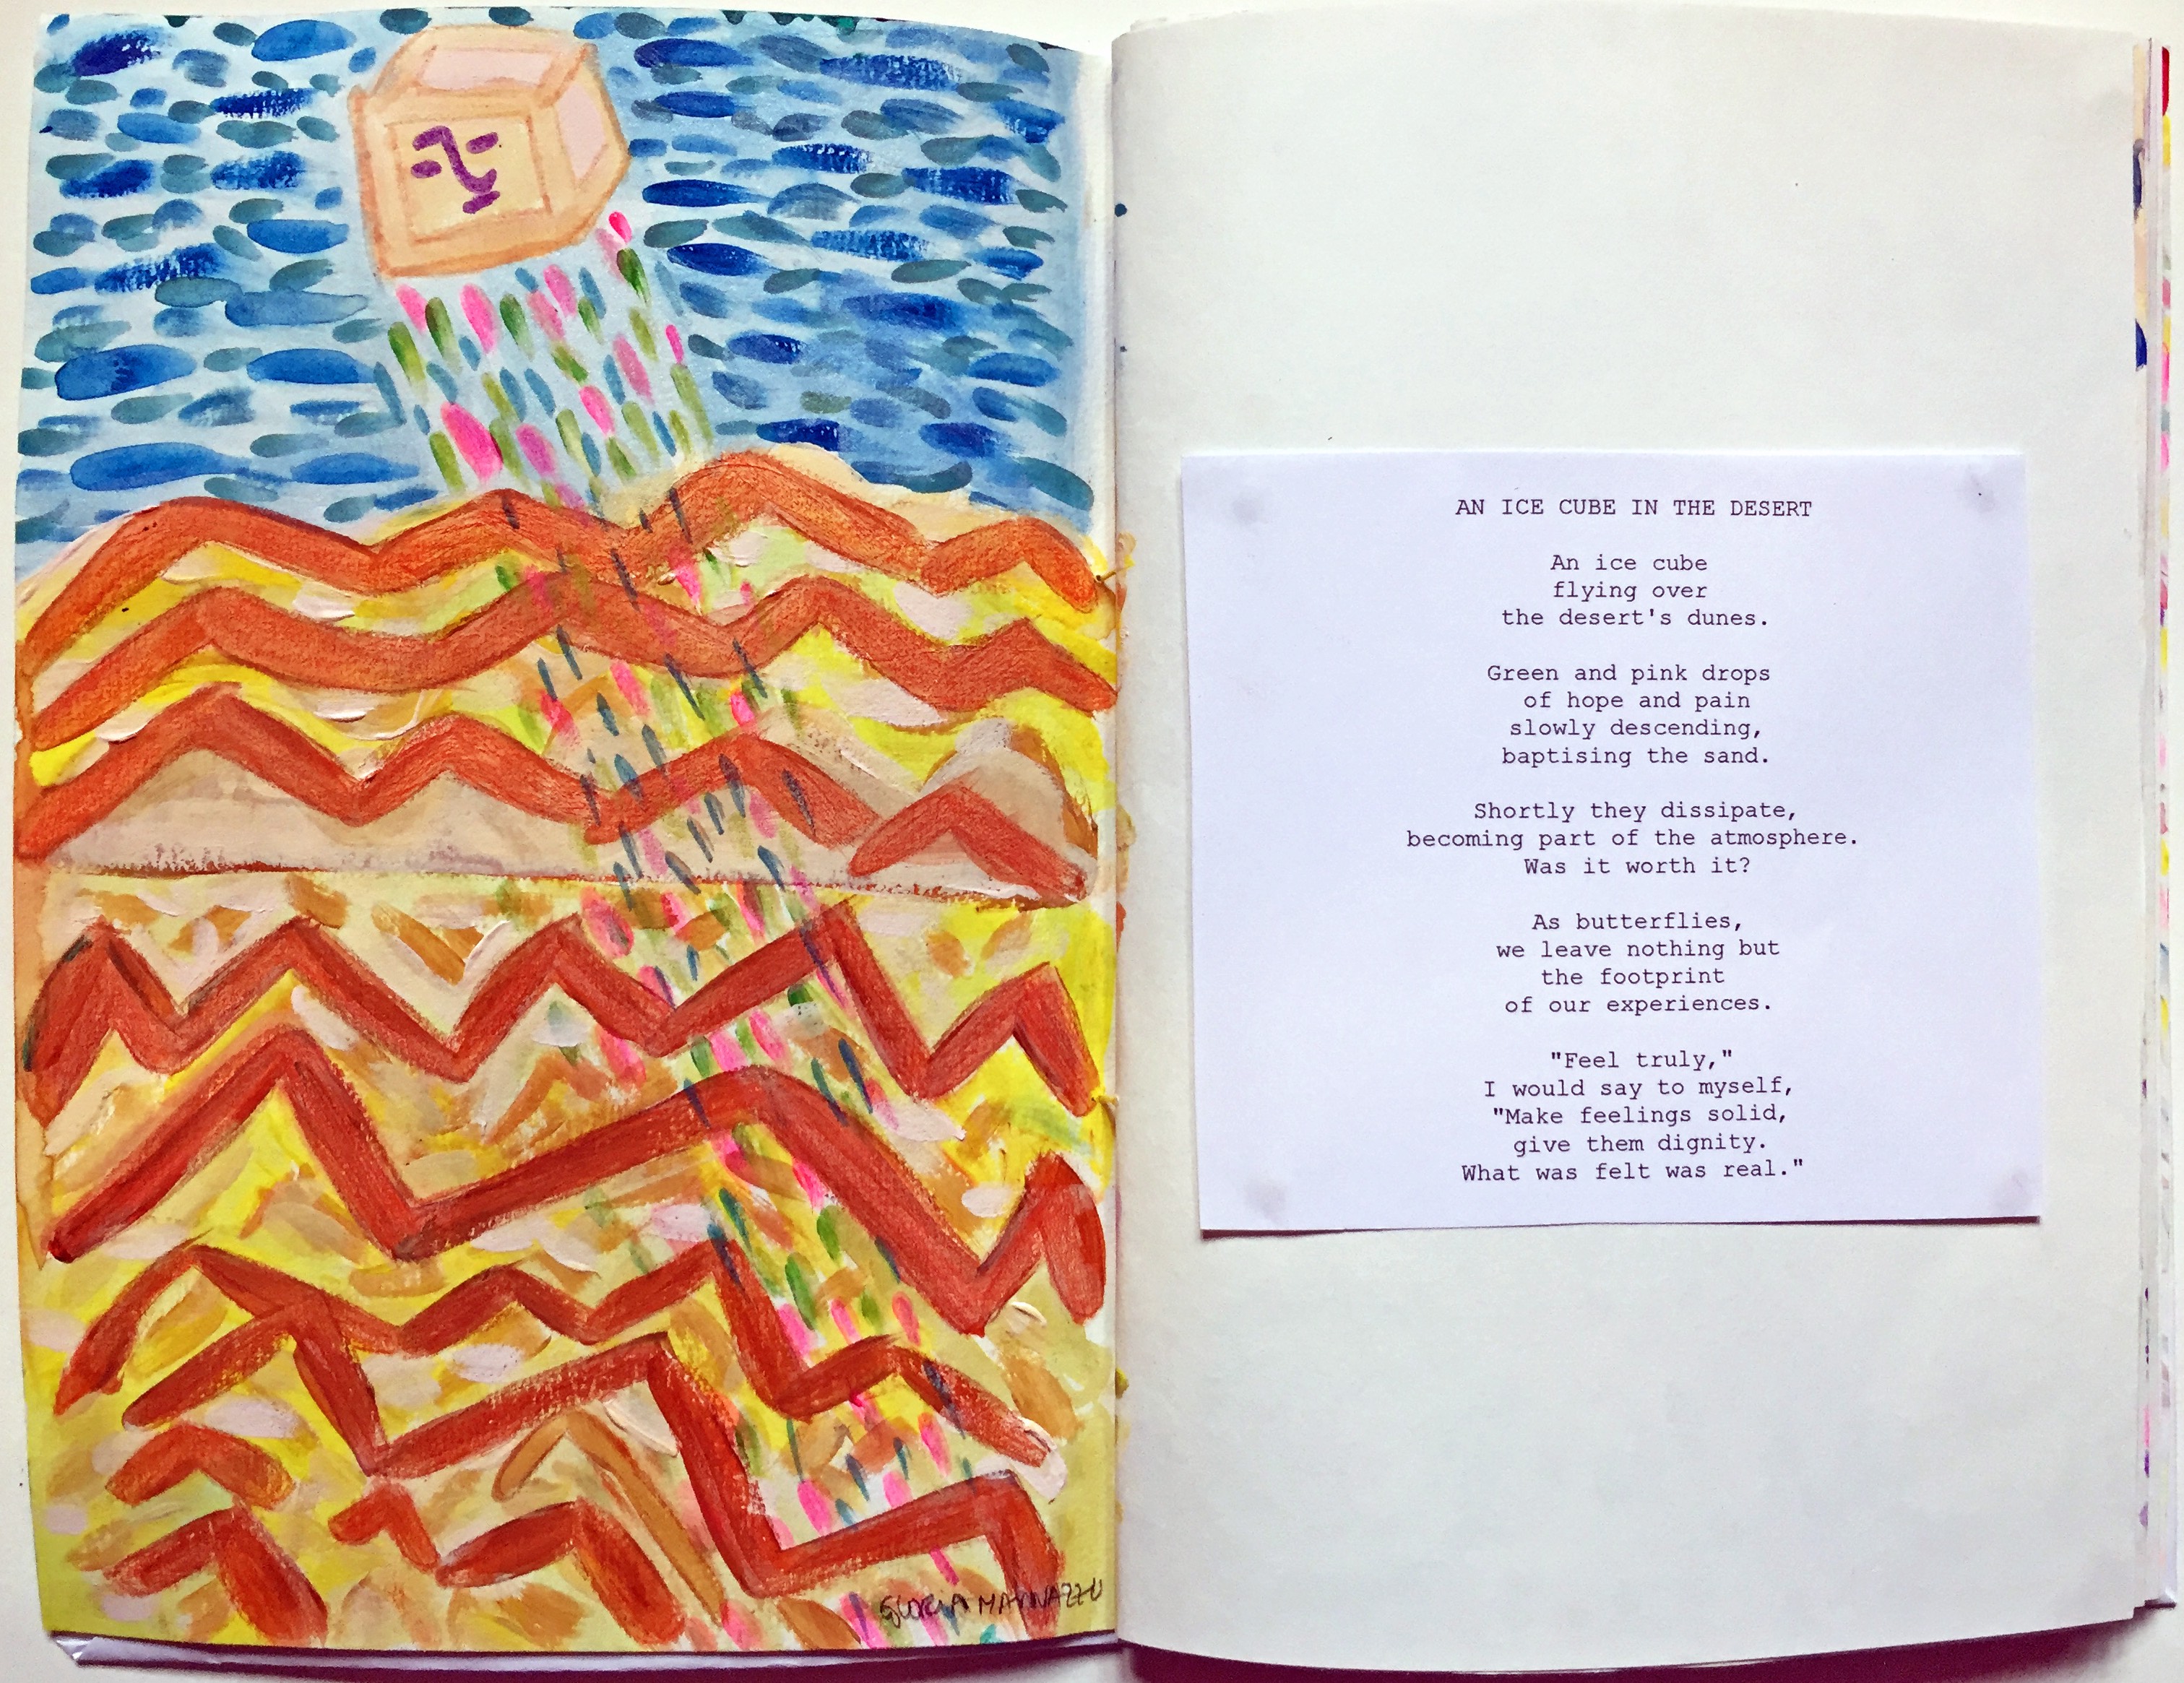 GLORIA MANNAZZU
AN ICE CUBE IN THE DESERT
An ice cube
flying over
the desert's dunes.
Green and pink drops
of hope and pain
slowly descending,
baptising the sand.
Shortly they dissipate,
becoming part of the atmosphere.
Was it worth it?
As butterflies,
we leave nothing but
the footprint
of our experiences.
"Feel truly,"
I would say to myself,
"Make feelings solid,
give them dignity.
What was felt was real."